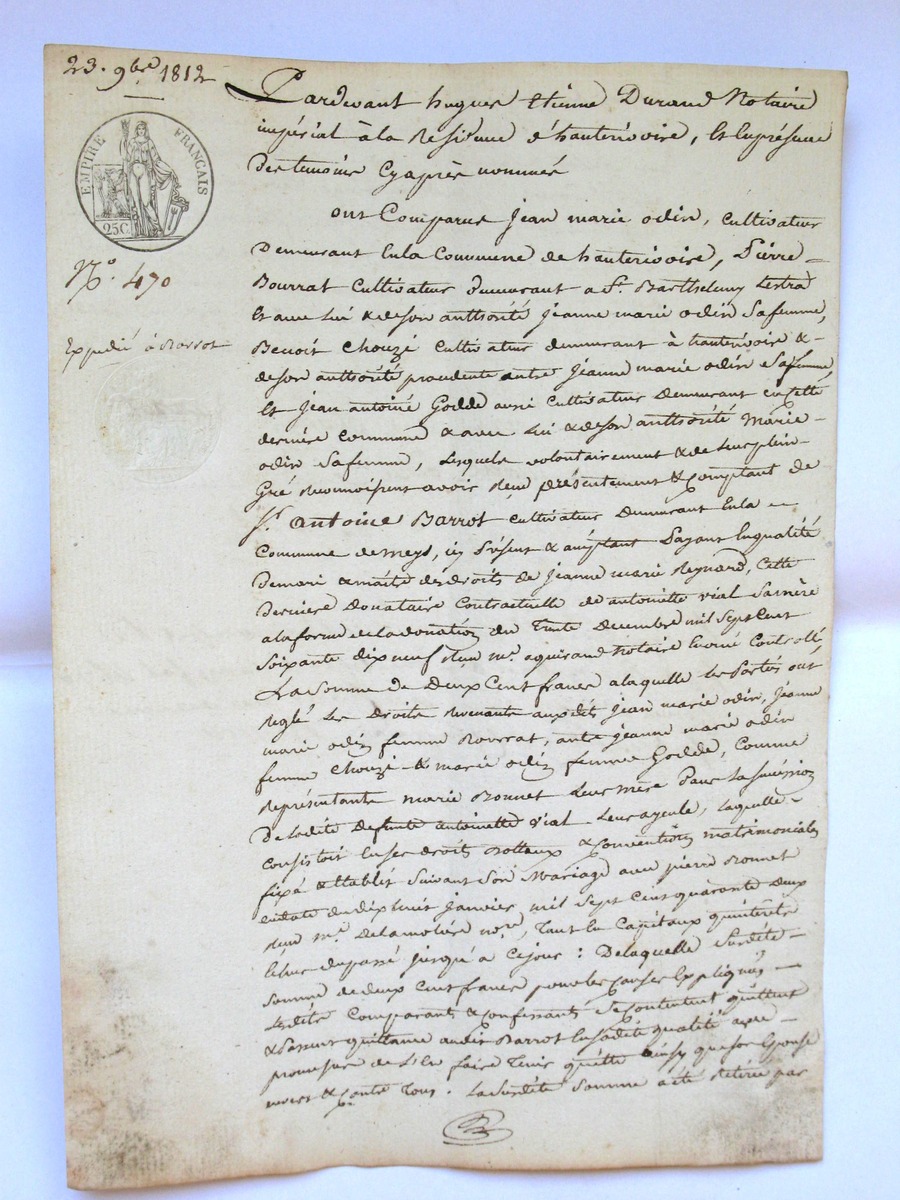 23. 9bre 1812
EMPIRE FRANÇAIS
25C.
N.o 470
Expedié à Barrot
Pardevant hugues Etienne Durand Notaire
impérial à la Residence d'hauterivoire, et en présence
Des temoins Cyaprès nommés
ont Comparus Jean marie odin, Cultivateur
Demeurant En la Commune de hauterivoire, Pierre
Bourrat Cultivateur demeurant a St. Barthelemy Lestra
Et avec Lui & de son authorité Jeanne marie odin Safemme,
Benoit Chouzé Cultivateur demeurant à hauterivoire &
de son authorité procedente autre Jeanne marie odin Safemme,
Et Jean antoine Godde aussi Cultivateur Demeurant en cette
derniere commune & avec Lui & de son authorité Marie
odin Safemme, Lesquels volontairement & de Leur plein
Gré Reconnoissent avoir Reçu présentement & comptant de
Sr. antoine Barrot Cultivateur Demeurant En la
Commune de meys, icy Présent & acceptant Payant En qualité
De mari & maitre des droits de Jeanne marie Reynard, Cette
Derniere Donataire Contractuelle de antoinette vial Sa mère
a la forme de la donation du Trente Decembre mil Sept Cent
Soixante dix neuf Reçu me. Notaire Controllé,
La Somme de Deux Cent francs a laquelle les Parties ont
Reglé Les Droits Revenants auxdits Jean marie odin, Jeanne
marie odin femme Bourrat, autre Jeanne marie odin
femme Chouzé & marie odin femme Godde, Comme
Représentants marie Bonnet Leur mère Dans La Succession
De Ladite Defunte antoinette vial Leur ayeule, Laquelle
Consistoit En Ses droits Dottaux & Conventions matrimoniales
fixé & Etablis Suivant Son Mariage avec pierre Bonnet
en date du dix huit Janvier mil Sept Cent quarante Deux
Reçu me. Delamolière nore., Tant En Capitaux qu'intérêts
du passé jusqu'à Ce jour : De laquelle Susdite
Somme de deux Cent francs pour les Causes Expliquées
Lesdits Comparants & Confessants Se Contentent quittent
& Passent quittance audit Barrot En Sadite qualité avec
promesse de L'En faire Tenir quitte ainsy que Son Epouse
envers & Contre Tous. La Susdite Somme a été Retirée par